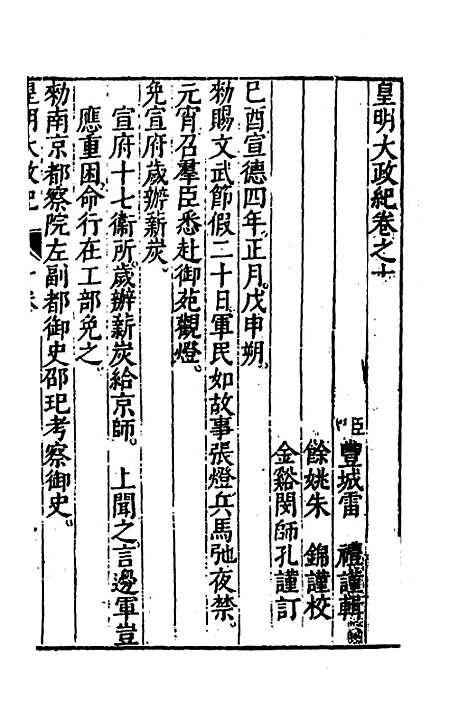 皇明大政紀卷之十
臣豐城雷　禮謹輯
餘姚朱　錦謹校
金谿閔師孔謹訂
己酉宣德四年正月戊申朔。
勑賜文武節假二十日軍民如故事張燈兵馬弛夜禁。
元宵召羣臣悉赴御苑觀燈。
免宣府歲辦薪炭。
宣府十七衞所歲辦薪炭給京師。上聞之言邊軍豈
應重困命行在工部免之。
勑南京都察院左副都御史邵玘考察御史。
皇明大政紀　十卷